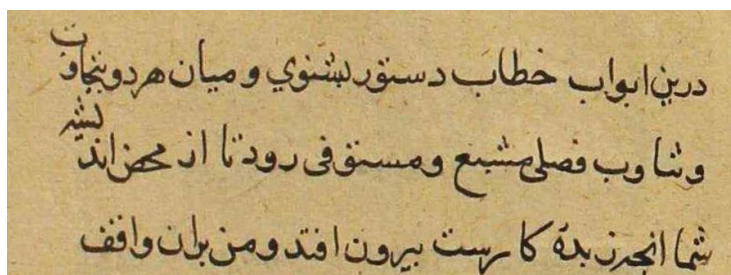 درین ابواب خطاب دستور بشنوی و میان هر دو بتجاوب
و تناوب فصلی مشبع و مستوفی رود تا از محض اندیشهٔ
شما انچه زبدهٔ کارست بیرون افتد و من بران واقف